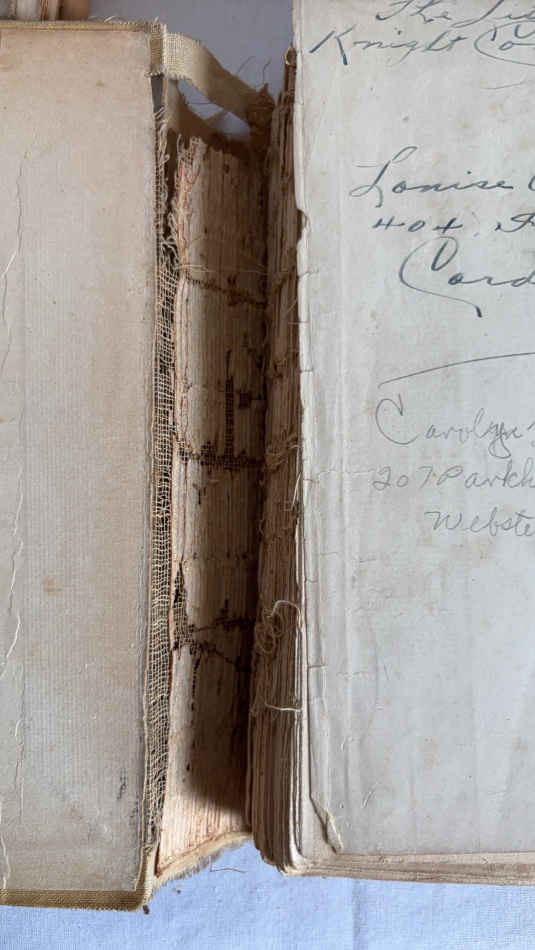 The
Knight Co
Louise
404
Cord
Carolyn
207 Parkh
Webste